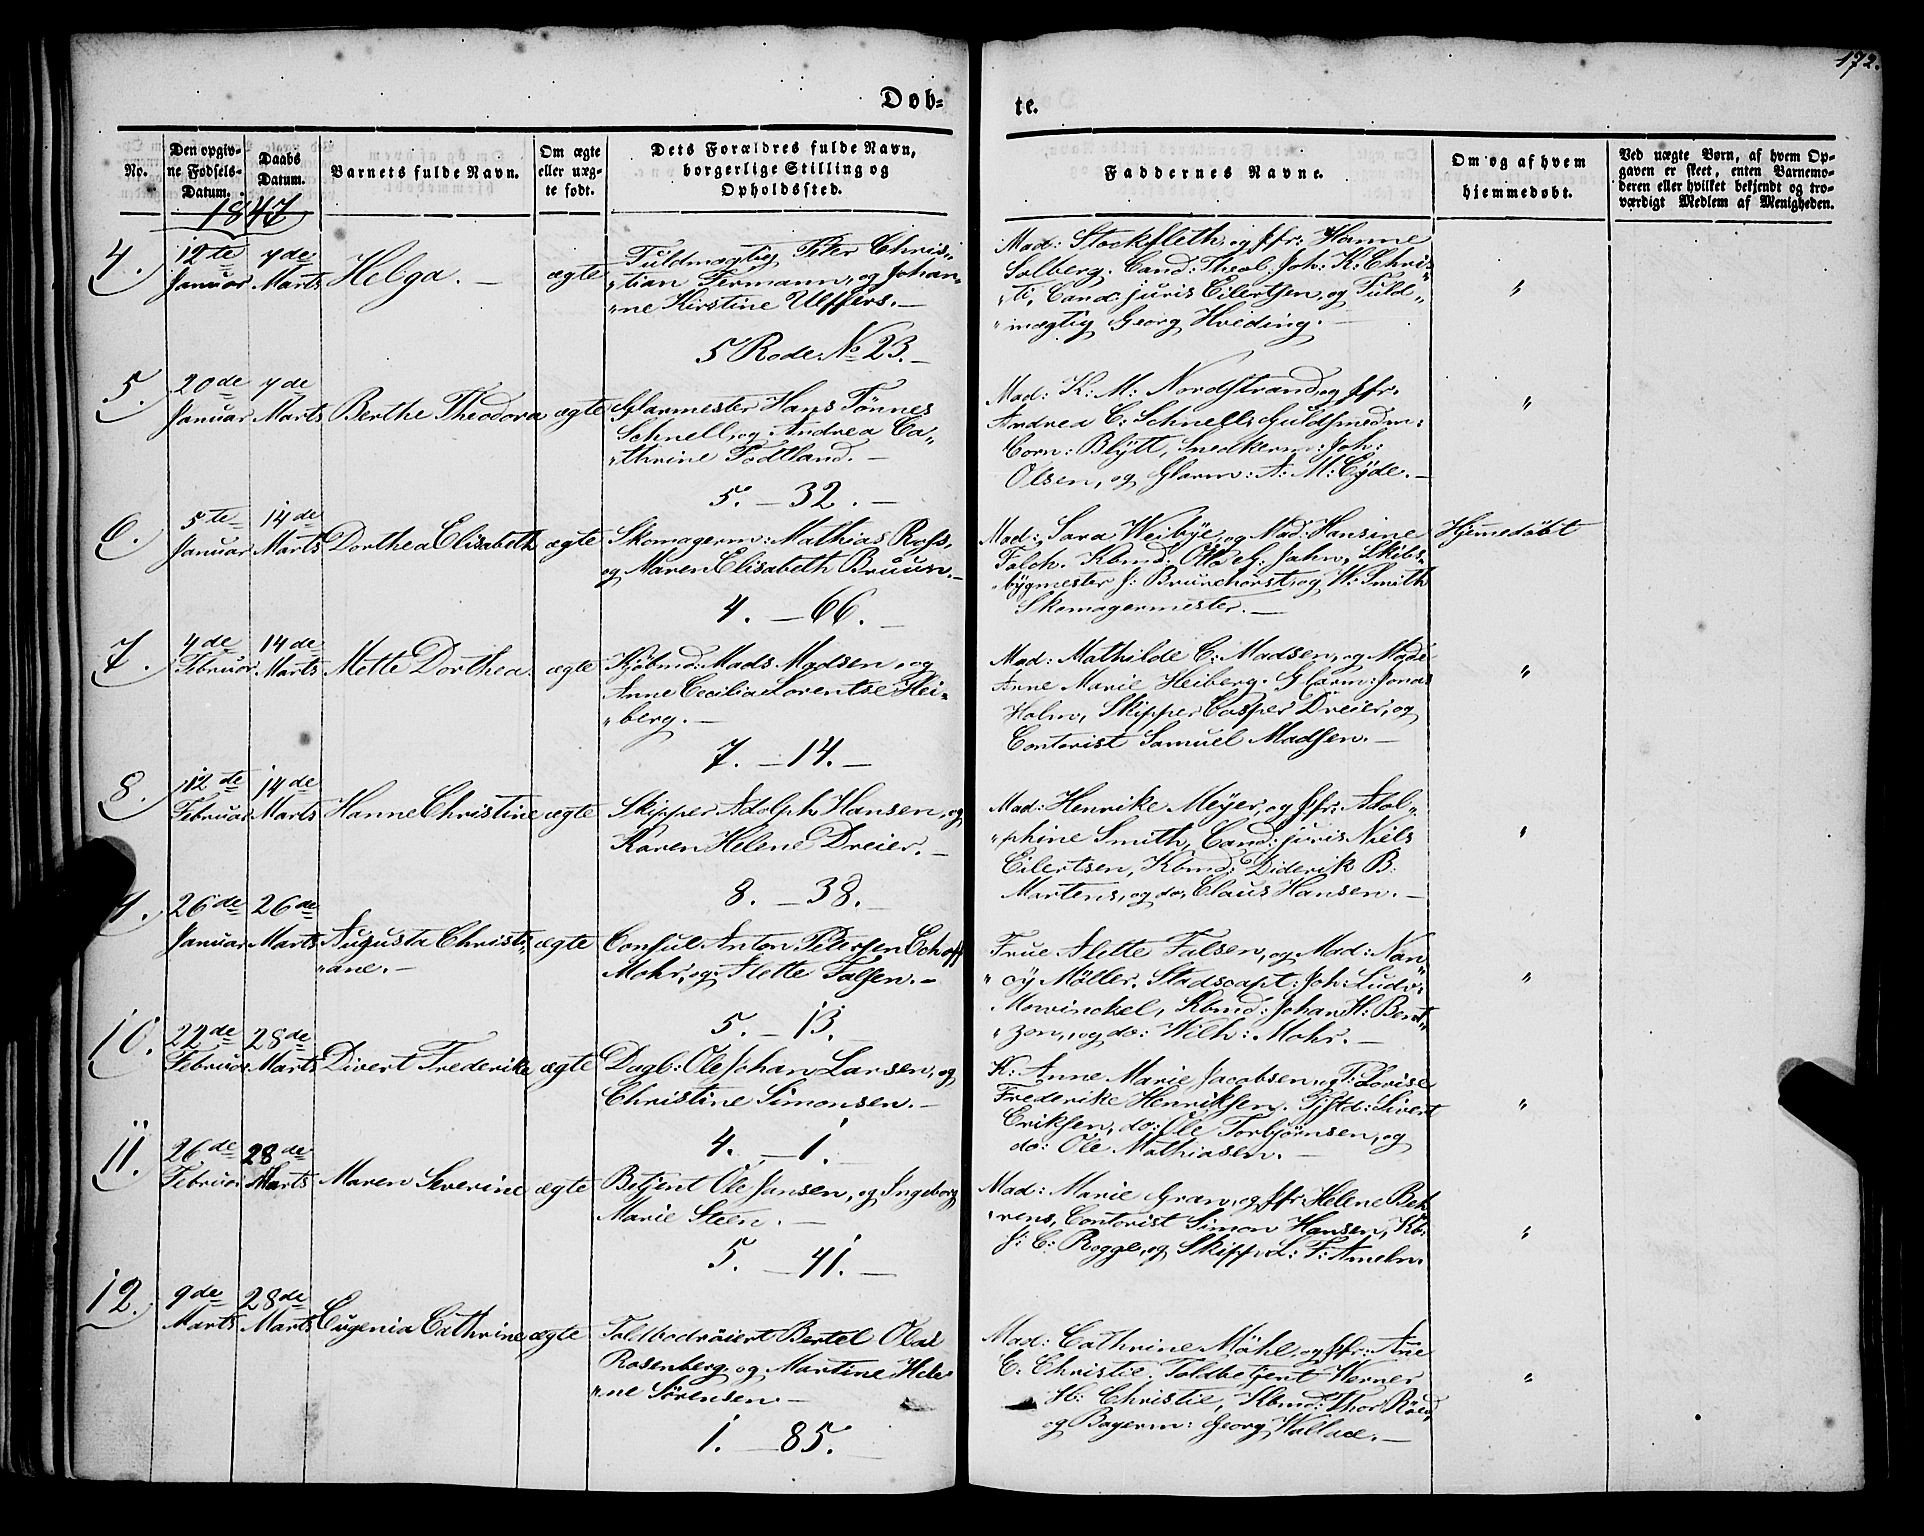 172.
Døb-
te.
No.
Den opgiv-
ne Fødsels-
Datum.
Daabs
Datum.
Barnets fulde Navn.
Om ægte
eller uæg-
te født.
Dets Forældres fulde Navn,
borgerlige Stilling og
Opholdssted.
Faddernes Navne.
Om og af hvem
hjemmedøbt.
Ved uægte Børn, af hvem Op-
gaven er skeet, enten Barnemo-
deren eller hvilket bekjendt og tro-
værdigt Medlem af Menigheden.
1847
4.
12te
Januar
7de
Marts
Helga. —
ægte
Fuldmægtig Peter Chris„
„tian Fermann, og Johan„
„ne Kirstine Ulffers. —
5 Rode No 23. —
Mad: Stockfleth, og Jfr: Hanne
Solberg. Cand: Theol. Joh: K: Chris„
„ti, Cand: juris Eilertsen, og Fuld„
„mægtig Georg Hveding. —
"
5.
20de
Januar
7de
Marts
Berthe Theodora
ægte
Glarmester Hans Tønnes
Schnell, og Andrea Ca„
„thrine Todtland. —
5. — 32. —
Mad: K: M: Nordstrand, og Jfr:
Andrea C: Schnell. Guldsmedm:
Corn: Blÿtt, Snedkerm: Joh:
Olsen, og Glarm: A: M: Eÿde. —
"
6.
5te
Januar
14de
Marts
Dorthea Elisabeth
ægte
Skomagerm: Mathias Ross,
og Maren Elisabeth Bruun. —
4. — 66. —
Mad: Sara Weibÿe, og Mad: Hansine
Falch. Kbmd: Otto G: Jahn, Skibs„
„bÿgmester J: Brunchorst, og W: Smith
Skomagermester. —
Hjemedøbt
7.
4de
Februar
14de
Marts
Mette Dorthea.
ægte
Kjøbmd: Mads Madsen, og
Anne Cecilia Lorentse Hei„
„berg. —
7. — 14. —
Mad: Mathilde C: Madsen, og Mad:
Anne Marie Heiberg. Glarm: Jonas
Holm, Skipper Casper Dreier, og
Contorist Samuel Madsen. —
"
8.
12te
Februar
14de
Marts
Hanne Christine
ægte
Skipper Adolph Hansen, og
Karen Helene Dreier. —
8. — 38. —
Mad: Henrike Meÿer, og Jfr: Adol„
„phine Smith, Cand: juris Niels
Eilertsen, Kbmd: Diderik B:
Martens, og do: Claus Hansen. —
"
9.
26de
Januar
26de
Marts
Augusta Christi„
„ane. —
ægte
Consul Anton Petersen Echoff
Mohr, og Alette Falsen. —
5. — 13.
Frue Alette Falsen, og Mad: Nan„
„cy Møller. Stadscapt: Joh: Ludv:
Mowinckel, Kbmd: Johan H: Bent„
„zen, og do: Wilh: Mohr. —
"
10.
22de
Februar
28de
Marts
Divert Frederike
ægte
Dagl: Ole Johan Larsen, og
Christine Simonsen. —
4. — 1. —
K: Anne Marie Jacobsen, og P: Lovise
Frederike Henriksen. Tjstd: Sivert
Eriksen, do: Ole Torbjørnsen, og
do: Ole Mathiasen. —
"
11.
26de
Februar
28de
Marts
Maren Severine
ægte
Betjent Ole Jansen, og Ingeborg
Marie Steen. —
5. — 41. —
Mad: Marie Gran, og Jfr: Helene Beh„
„rens, Contorist Simon Hansen, Kb:
J: C: Rogge, og Skipp: L: F: Ameln.
"
12.
9de
Marts
28de
Marts
Eugenia Cathrine
ægte
Toldbodrøiert Bertel Olai
Rosenberg, og Martine Hele„
„ne Sørensen —
1. — 85.
Mad: Cathrine Møhl, og Jfr: Ane
C: Christie. Toldbetjent Werner
H: Christie, Kbmd: Thor Røed,
og Bagerm: Georg Wallace. —
"